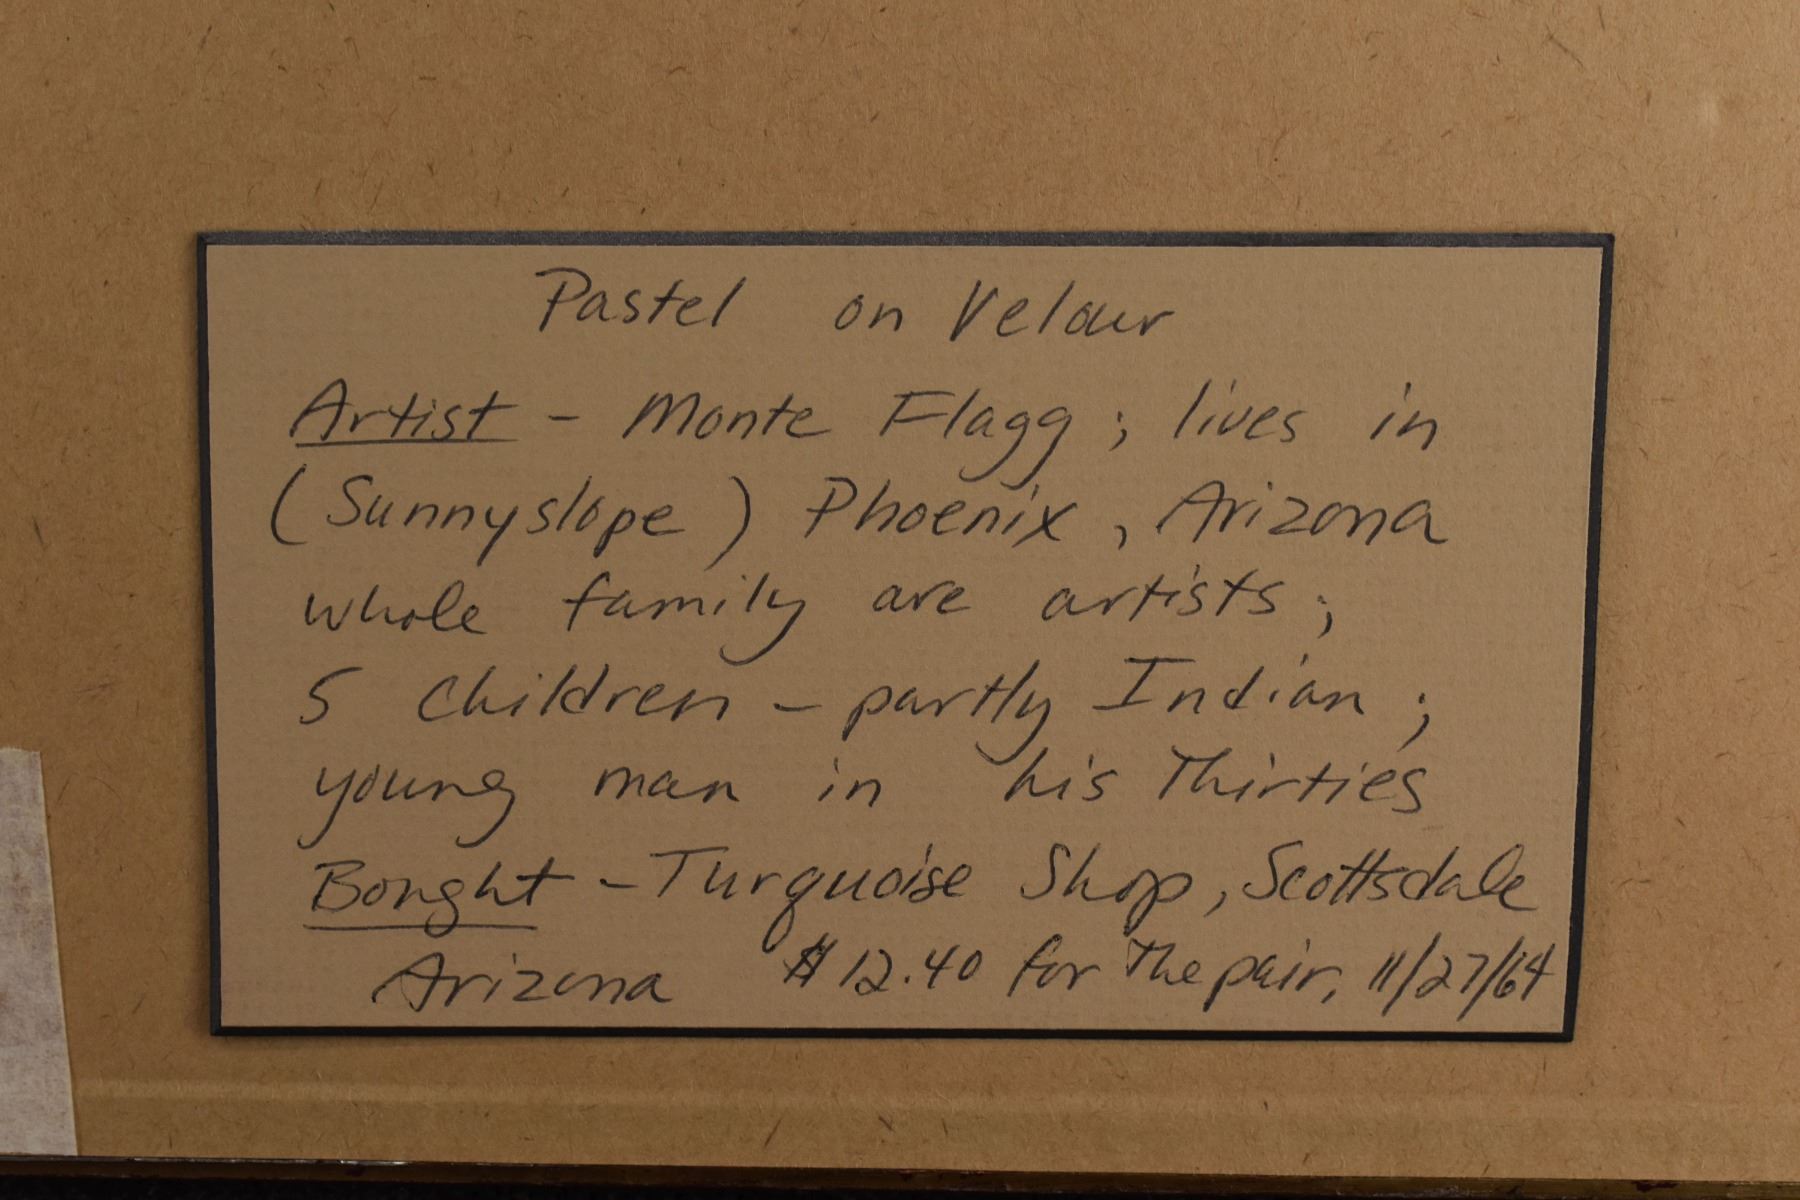 Pastel on Velour
Artist - Monte Flagg; lives in
(Sunnyslope) Phoenix, Arizona
whole family are artists;
5 children - partly Indian;
young man in his Thirties
Bought - Turquoise Shop, Scottsdale
Arizona $12.40 for The pair, 11/27/64